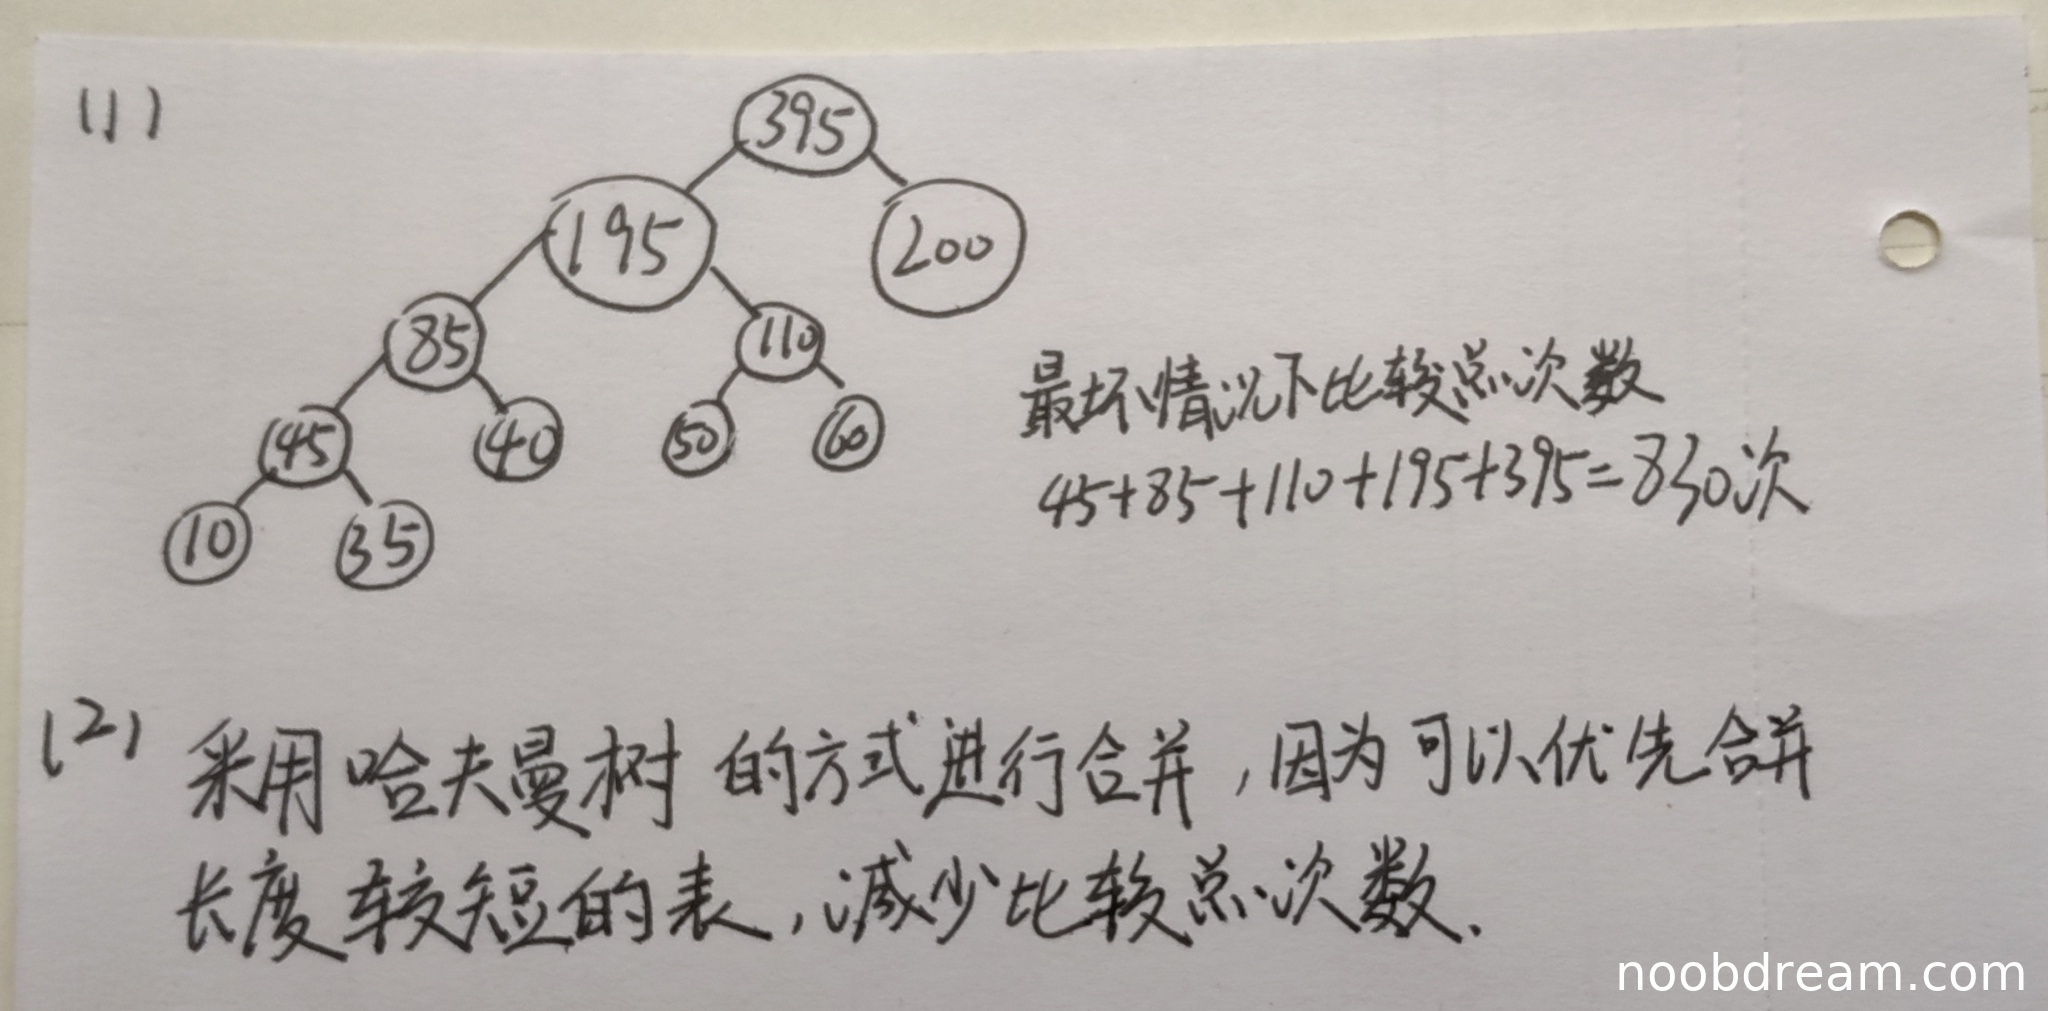 (1)
395
195
200
85
110
45
40
50
60
10
35
最坏情况下比较总次数
45+85+110+195+395=830次
(2) 采用哈夫曼树的方式进行合并,因为可以优先合并
长度较短的表,减少比较总次数.
noobdream.com